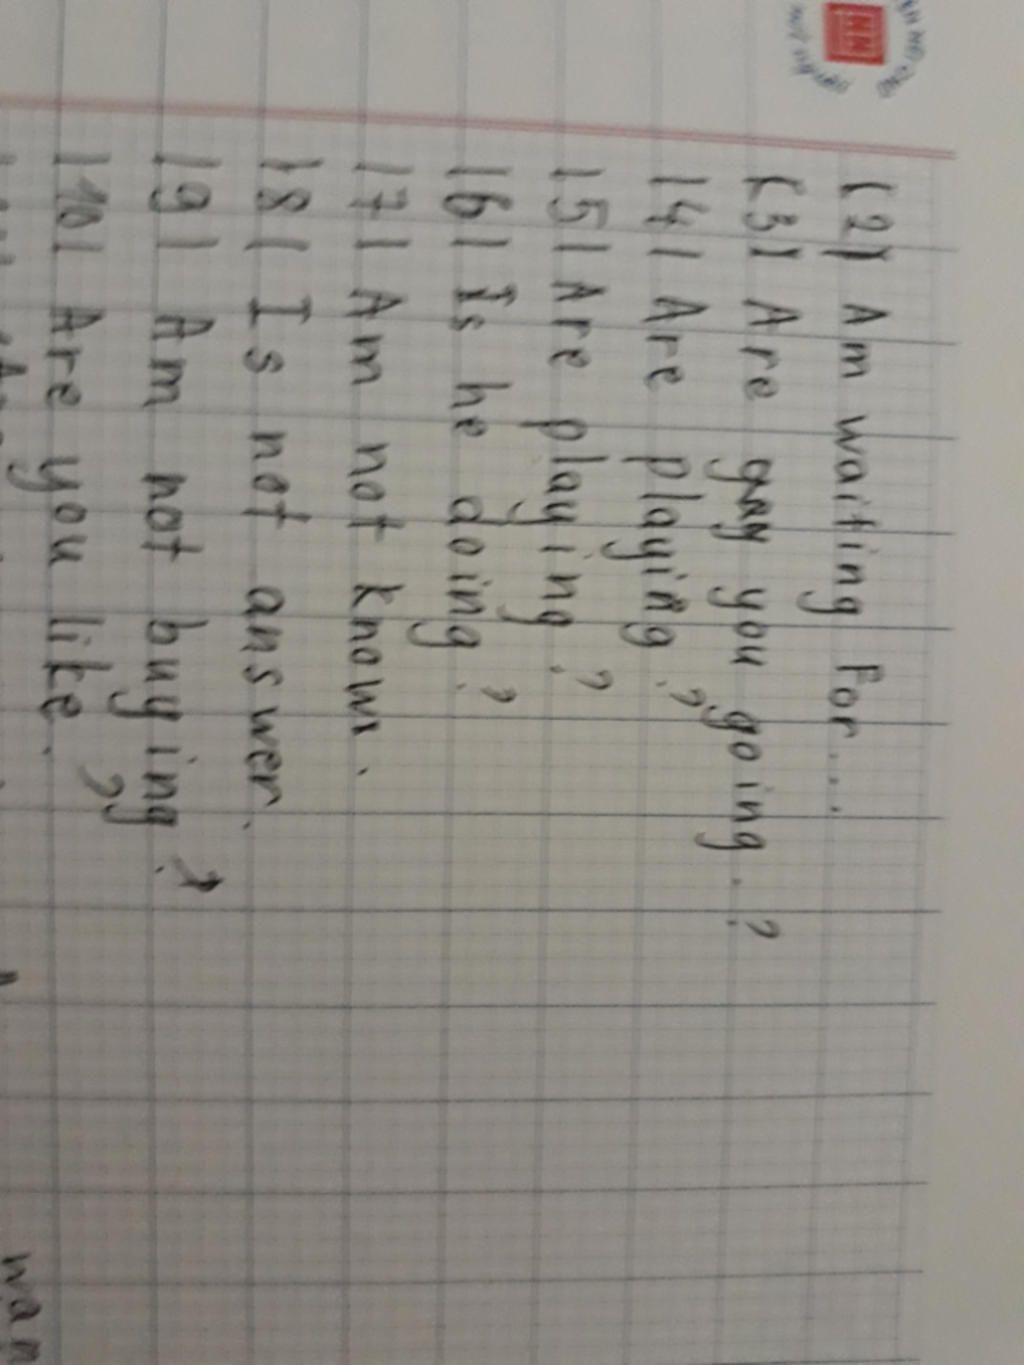 (2) Am waiting for...
(3) Are you going.?
(4) Are playing.?
(5) Are playing.?
(6) Is he doing.?
(7) Am not know.
(8) Is not answer.
(9) Am not buying.?
(10) Are you like.?